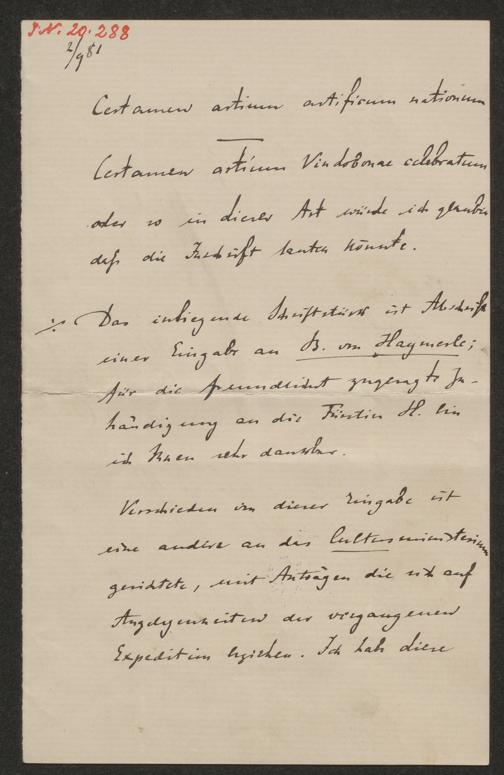 J.N. 20.288
2/9 81
Certamen artium artificum nationum
Certamen artium Vindobonae celebratum
oder so in dieser Art würde ich glauben
daß die Inschrift lauten könnte.
./. Das inliegende Schriftstück ist Abschrift
einer Eingabe an B. von Haymerle;
für die freundlichst zugesagte Zu-
händigung an die Fürstin H. bin
ich Ihnen sehr dankbar.
Verschieden von dieser Eingabe ist
eine andere an das Cultusministerium
gerichtete, mit Anträgen die sich auf
Angelegenheiten der vergangenen
Expedition beziehen. Ich habe diese